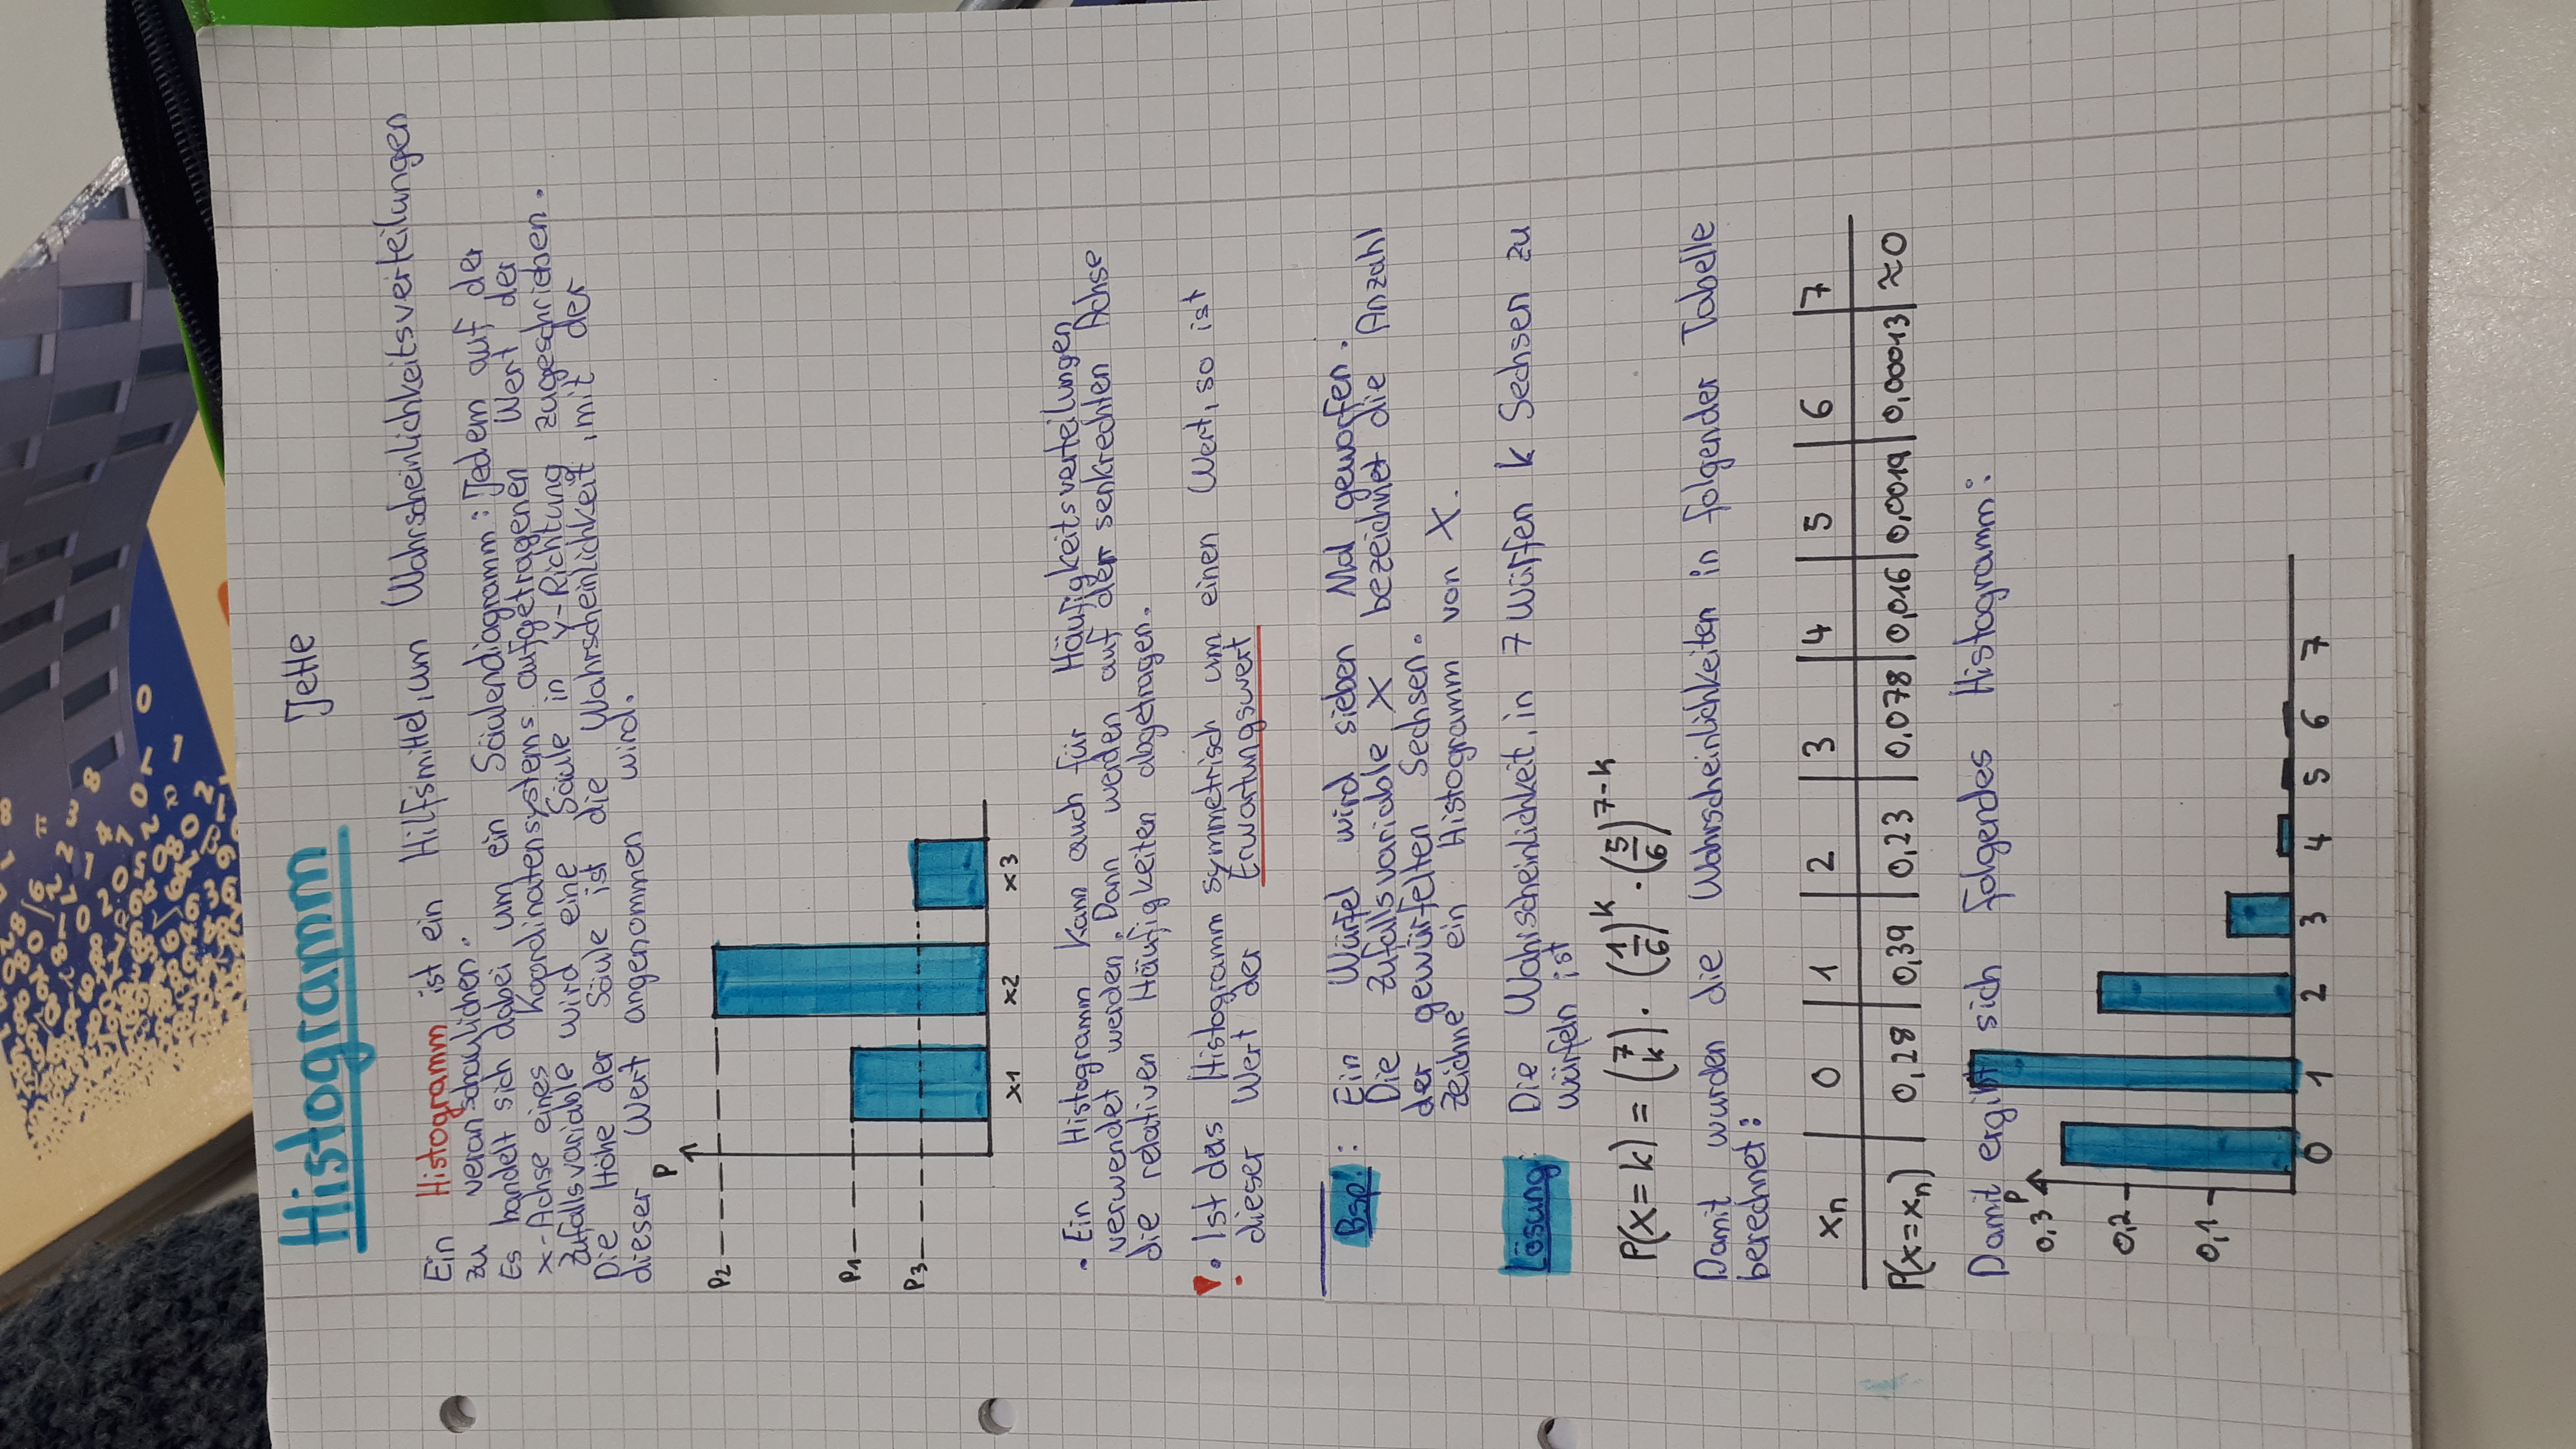 Histogramm
Jette
Ein Histogramm ist ein Hilfsmittel, um Wahrscheinlichkeitsverteilungen
zu veranschaulichen.
Es handelt sich dabei um ein Säulendiagramm: Jedem auf der
x-Achse eines Koordinatensystems aufgetragenen Wert der
Zufallsvariable wird eine Säule in y-Richtung zugeschrieben.
Die Höhe der Säule ist die Wahrscheinlichkeit, mit der
dieser Wert angenommen wird.
P
P2
P1
P3
x1 x2 x3
• Ein Histogramm kann auch für Häufigkeitsverteilungen
verwendet werden. Dann werden auf der senkrechten Achse
die relativen Häufigkeiten abgetragen.
! • Ist das Histogramm symmetrisch um einen Wert, so ist
dieser Wert der Erwartungswert
Bsp!: Ein Würfel wird sieben Mal geworfen.
Die Zufallsvariable X bezeichnet die Anzahl
der gewürfelten Sechsen.
Zeichne ein Histogramm von X.
Lösung: Die Wahrscheinlichkeit, in 7 Würfen k Sechsen zu
würfeln ist
P(X=k) = (7/k) · (1/6)^k · (5/6)^7-k
Damit wurden die Wahrscheinlichkeiten in folgender Tabelle
berechnet:
xn | 0 | 1 | 2 | 3 | 4 | 5 | 6 | 7
P(X=xn) | 0,28 | 0,39 | 0,23 | 0,078 | 0,016 | 0,0019 | 0,00013 | ≈0
Damit ergibt sich folgendes Histogramm:
P
0,3
0,2
0,1
0 1 2 3 4 5 6 7